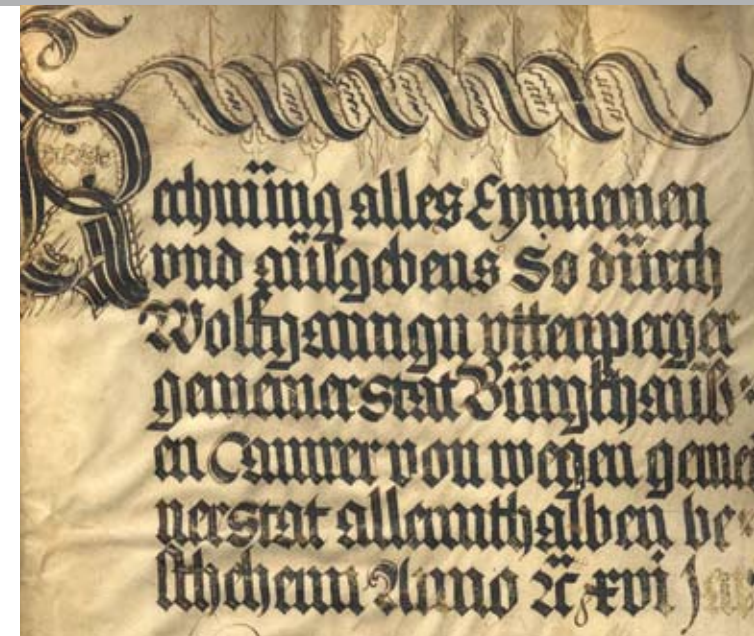 Rechnüng alles Eynnemen
vnd aüsgebens So dürch
Wolfganngn vttenperger
gemeiner Stat Bürgkhaüß-
en Camrer von wegen gemei
ner Stat allennthalben be-
schehenn Anno ꝛc̄ xvi Jar